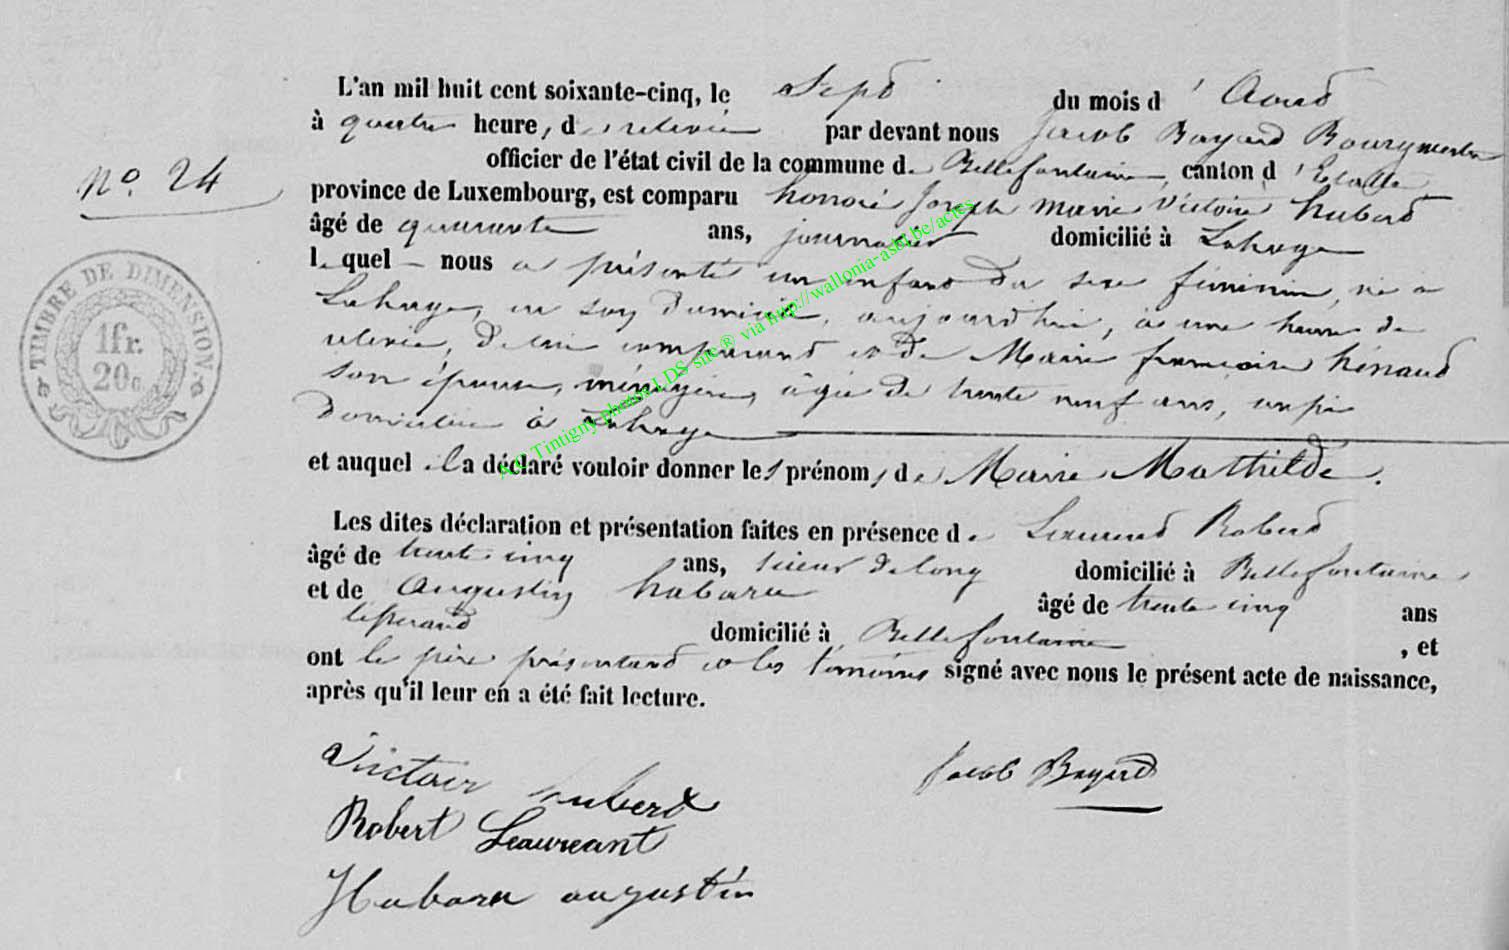 L'an mil huit cent soixante-cinq, le Sept du mois d' Aout
à quatre heures, de relevée par devant nous Jacob Bayard Bourgmestre
officier de l'état civil de la commune de Bellefontaine, canton d'Etalle
N° 24
province de Luxembourg, est comparu honoré Joseph Marie Victoire hubert
âgé de quarante ans, journalier domicilié à Lahage
lequel nous a présenté un enfant du sexe féminin, né à
Lahage, en son Domicile, aujourd'hui, à une heure de
relevée, de lui comparant et de Marie françoise hénaud
son épouse, ménagère, âgée de trente neuf ans, aussi
Domiciliée à Lahage
et auquel il a déclaré vouloir donner les prénoms de Marie Mathilde.
Les dites déclaration et présentation faites en présence de Leaureant Robert
âgé de trente cinq ans, scieur de long domicilié à Bellefontaine
et de Augustin habaru âgé de trente cinq ans
tisserand domicilié à Bellefontaine, et
ont le père présentant et les témoins signé avec nous le présent acte de naissance,
après qu'il leur en a été fait lecture.
Victoir hubert
Jacob Bayard
Robert Leaureant
Habaru augustin
TIMBRE DE DIMENSION
1fr.
20c.
A.C Tintigny photos LDS site ® via http://wallonia-asbl.be/actes